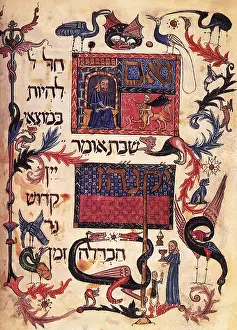 ואם
חל ל
להיות
במוצאי
שבת אומר
יקנהז
יין
קדוש
נר
הבדלה זמן